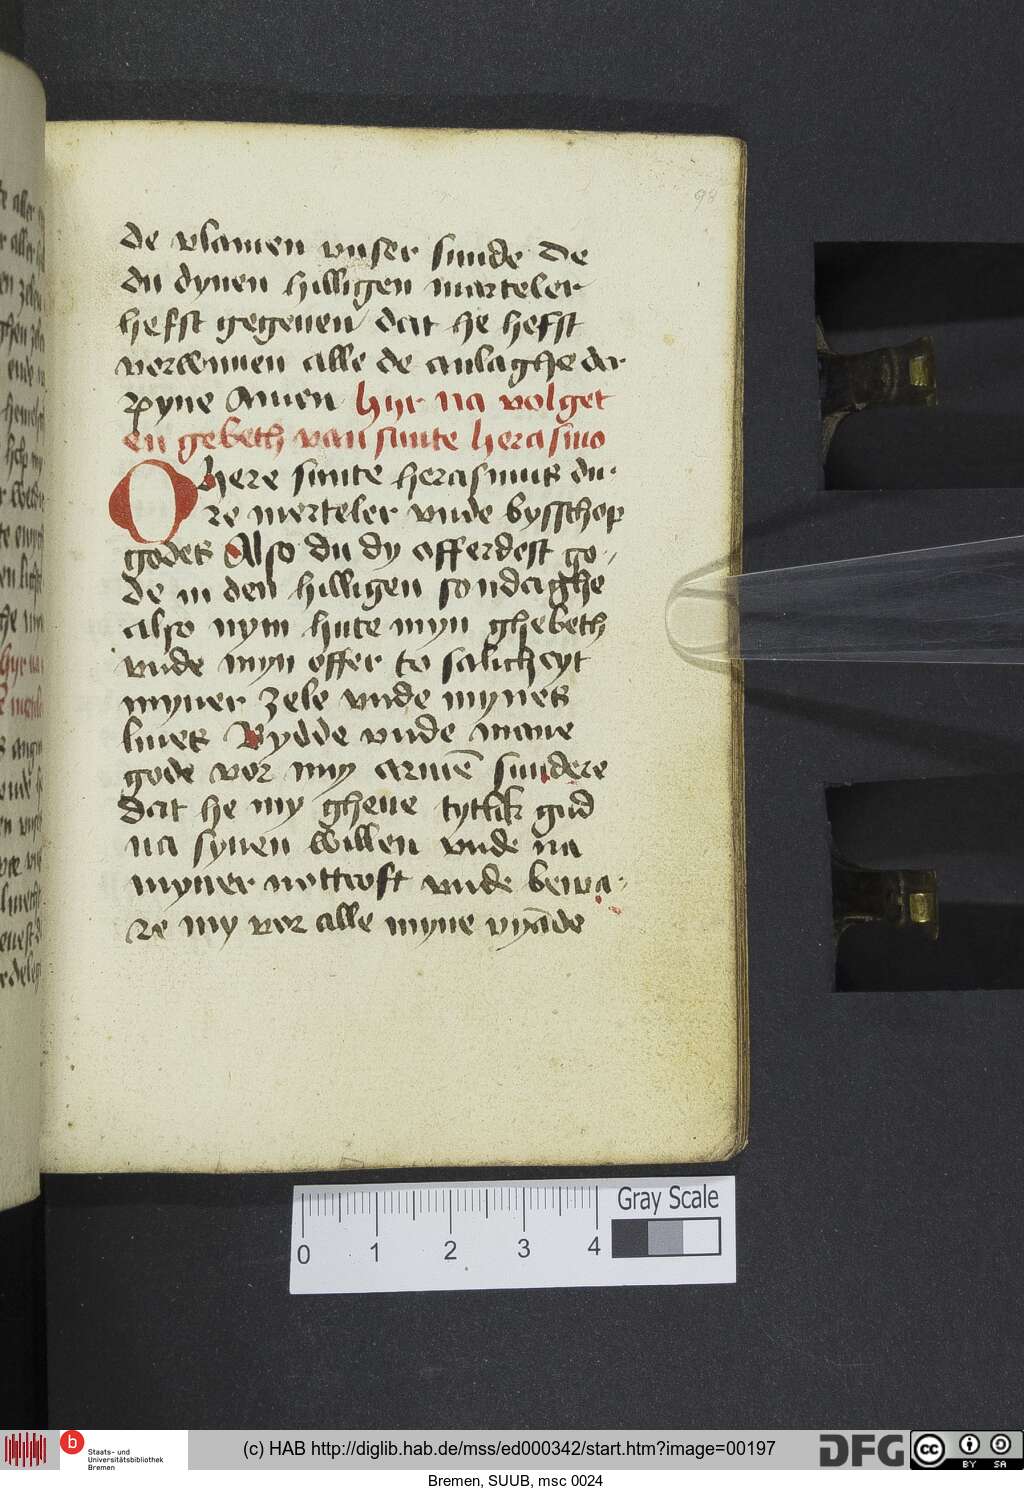 98
de vlamen vnser sunde De
du dynen hilligen marteler
hefst gegeuen dat he hefst
verwunnen alle de anlaghe der
pyne Amen Hyr na volget
en gebeth van sunte herasmo
O here sunte herasmus du-
re merteler vnde bysschop
godes Also du dy offerdest go-
de in den hilligen sondaghe
also nym hute myn ghebeth
vnde myn offer to salicheyt
myner zele vnde mynes
liues Bydde vnde mane
gode vor my armē sundere
dat he my gheue tytlik gud
na synen willen vnde na
myner nottroft vnde bewa-
re my vor alle myne vyāde
0 1 2 3 4 Gray Scale
b Staats- und
Universitätsbibliothek
Bremen
(c) HAB http://diglib.hab.de/mss/ed000342/start.htm?image=00197
DFG cc BY SA
Bremen, SUUB, msc 0024